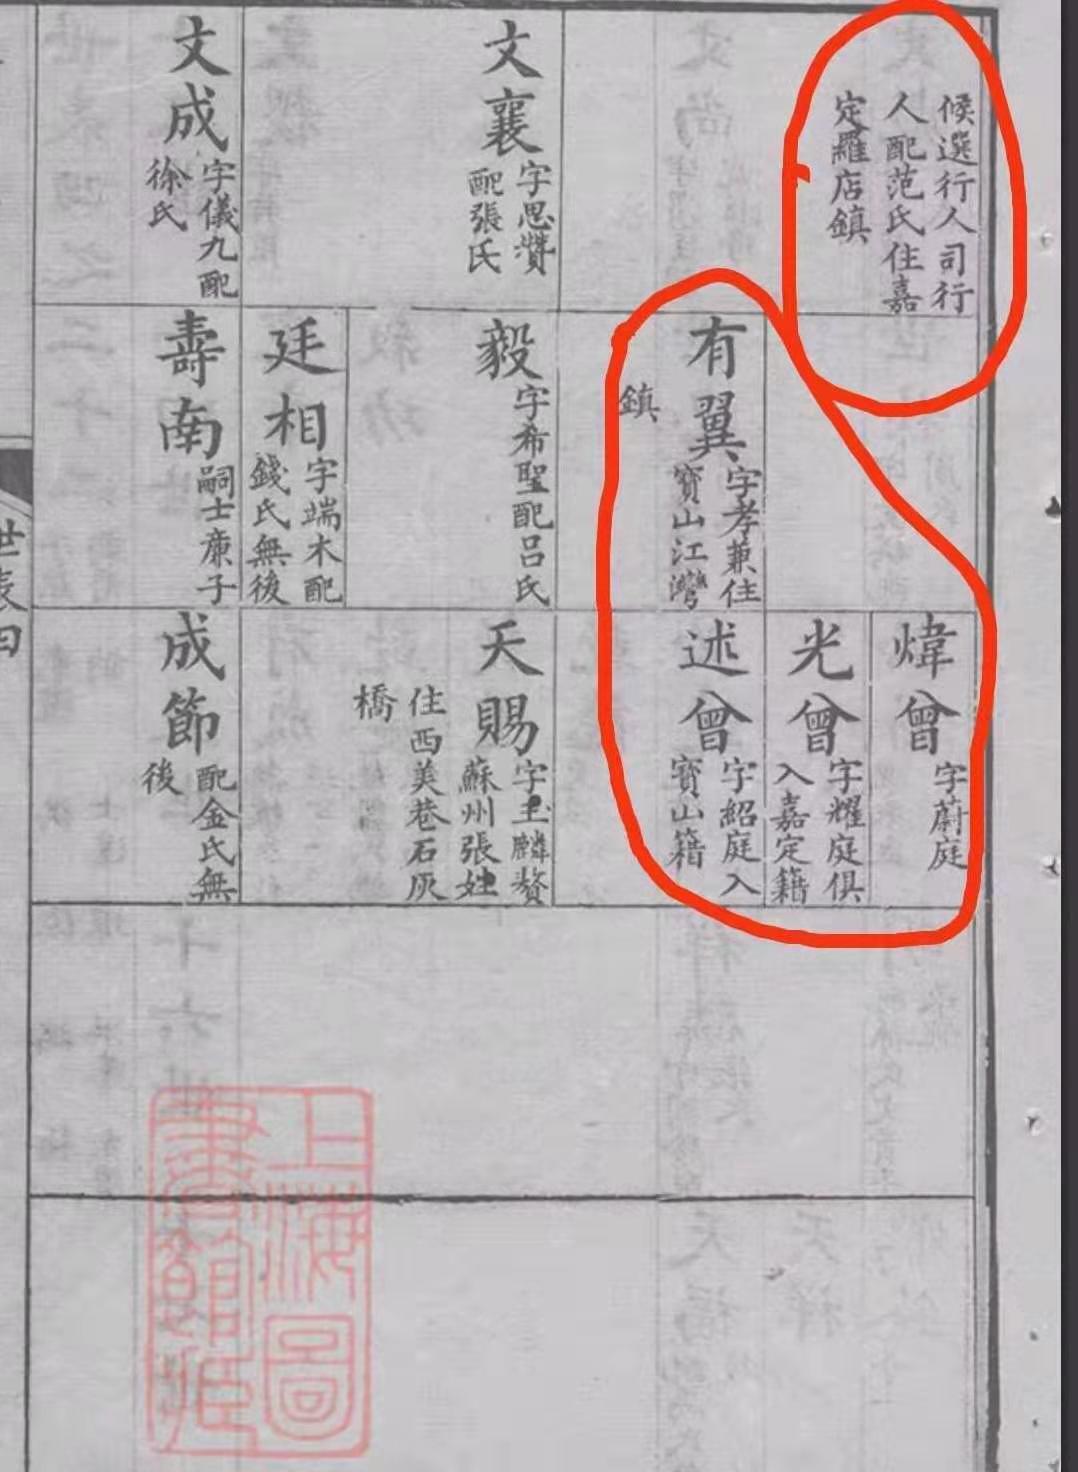 候選行人司行
人配范氏住嘉
定羅店鎮
文襄
字思贊
配張氏
文成
字儀九配
徐氏
有翼
字孝兼住
寶山江灣
鎮
毅
字希聖配呂氏
廷相
字端木配
錢氏無後
壽南
嗣士康子
煒曾
字蔚庭
光曾
字耀庭俱
入嘉定籍
述曾
字紹庭入
寶山籍
天賜
字玉麟贅
蘇州張姓
住西美巷石灰
橋
成節
配金氏無
後
世表四
上海圖
書館藏